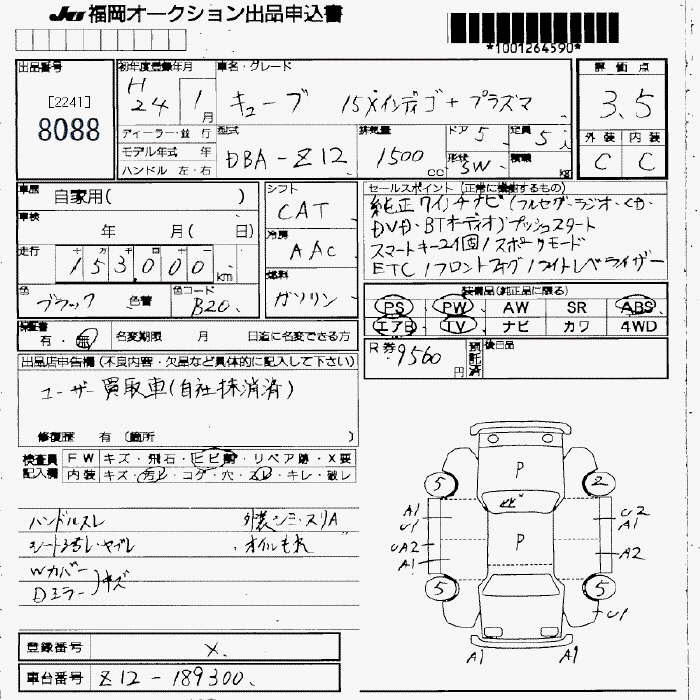 JU 福岡オークション出品申込書
*1001264590*
出品番号
[2241]
8088
初年度登録年月
H 24 1 月
車名・グレード
キューブ 15Xインディゴ+プラズマ
評価点
3.5
外装 内装
C C
ディーラー・並行
モデル年式 年
ハンドル 左・右
型式
DBA-Z12
排気量
1500 cc
ドア 5
定員 5人
形状 SW
積載 kg
車歴 自家用( )
車検 年 月( 日)
走行 十 万 千 百 十
153,000 km
色 ブラック 色替
色コード B20
シフト CAT
冷房 AAC
燃料 ガソリン
セールスポイント(正常に機能するもの)
純正7インチナビ(フルセグ・ラジオ・CD・
DVD・BTオーディオ)プッシュスタート
スマートキー2個/スポーツモード
ETC/フロントフォグ/ライトレベライザー
装備品(純正品に限る)
PS PW AW SR ABS
エアB TV ナビ カワ 4WD
保証書 有・無
名変期限 月 日迄に名変できる方
R券 9560 円
預託済
後日品
出品店申告欄(不良内容・欠品など具体的に記入して下さい)
ユーザー買取車(自社抹消済)
修復歴 有(箇所 )
検査員記入欄
FW キズ・飛石・ヒビ割・リペア跡・X要
内装 キズ・汚レ・コゲ・穴・スレ・キレ・破レ
ハンドルスレ 外装シミ・スリA
シート汚れ・ヤブレ ・オイルもれ
Wカバー
Dミラー
キズ
P
5 2
A1 U1
U2 A1
P
UA2 A1
A2
5 5
U1
A1 A1
登録番号 X
車台番号 Z12-189300